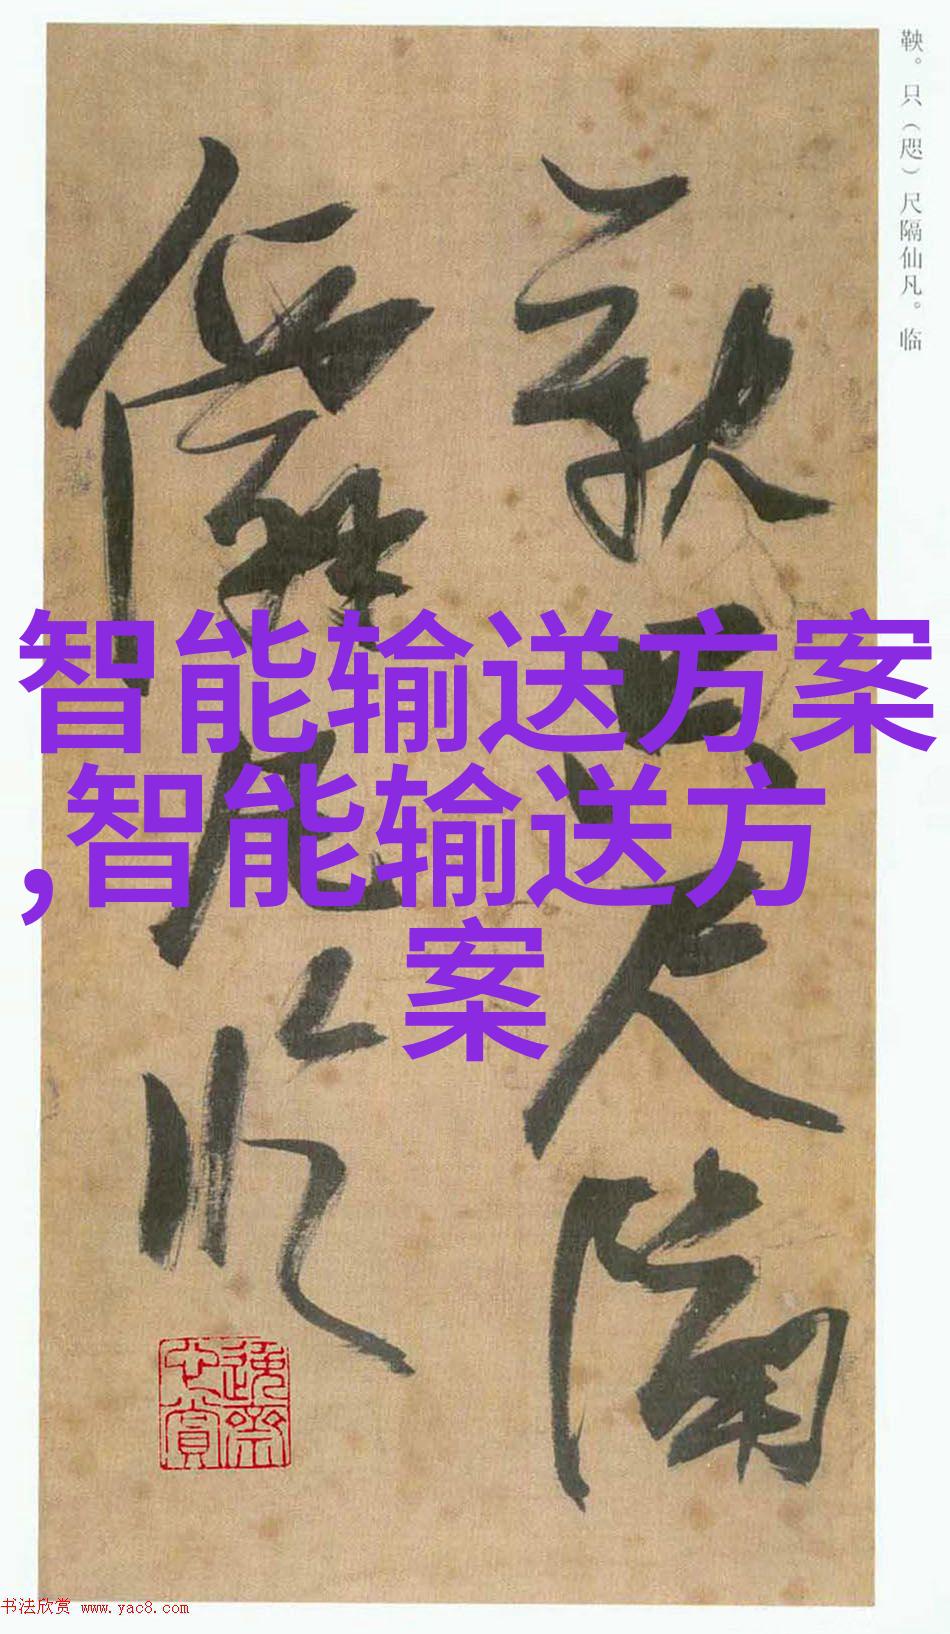 鞅。只（咫）尺隔仙凡。临
鞅只尺隔
僊凡临
智能输送方案
,智能输送方
案
书法欣赏 www.yac8.com